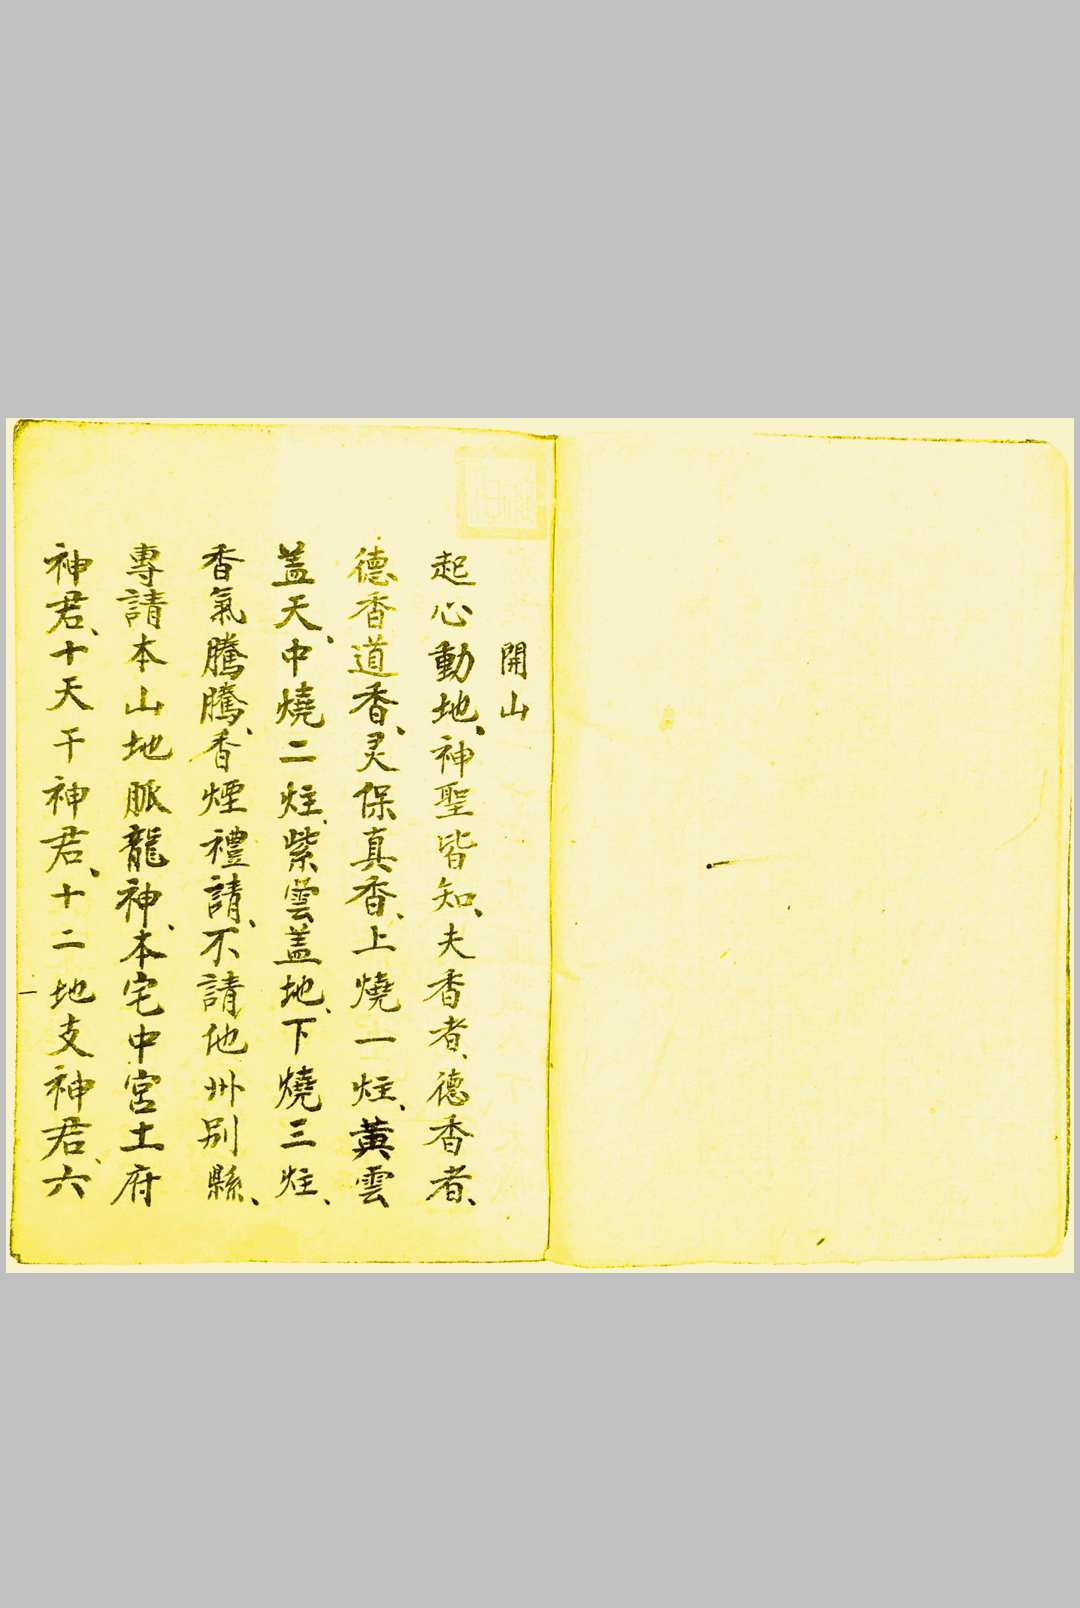 開山
起心動地、神聖皆知、夫香者、德香者、
德香道香、灵保真香、上燒一炷、黃雲
盖天、中燒二炷、紫雲盖地、下燒三炷、
香氣騰騰、香煙禮請、不請他州别縣、
專請本山地脈龍神、本宅中宮土府
神君、十天干神君、十二地支神君、六